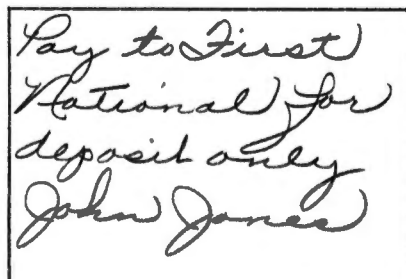 Pay to First
National for
deposit only
John Jones